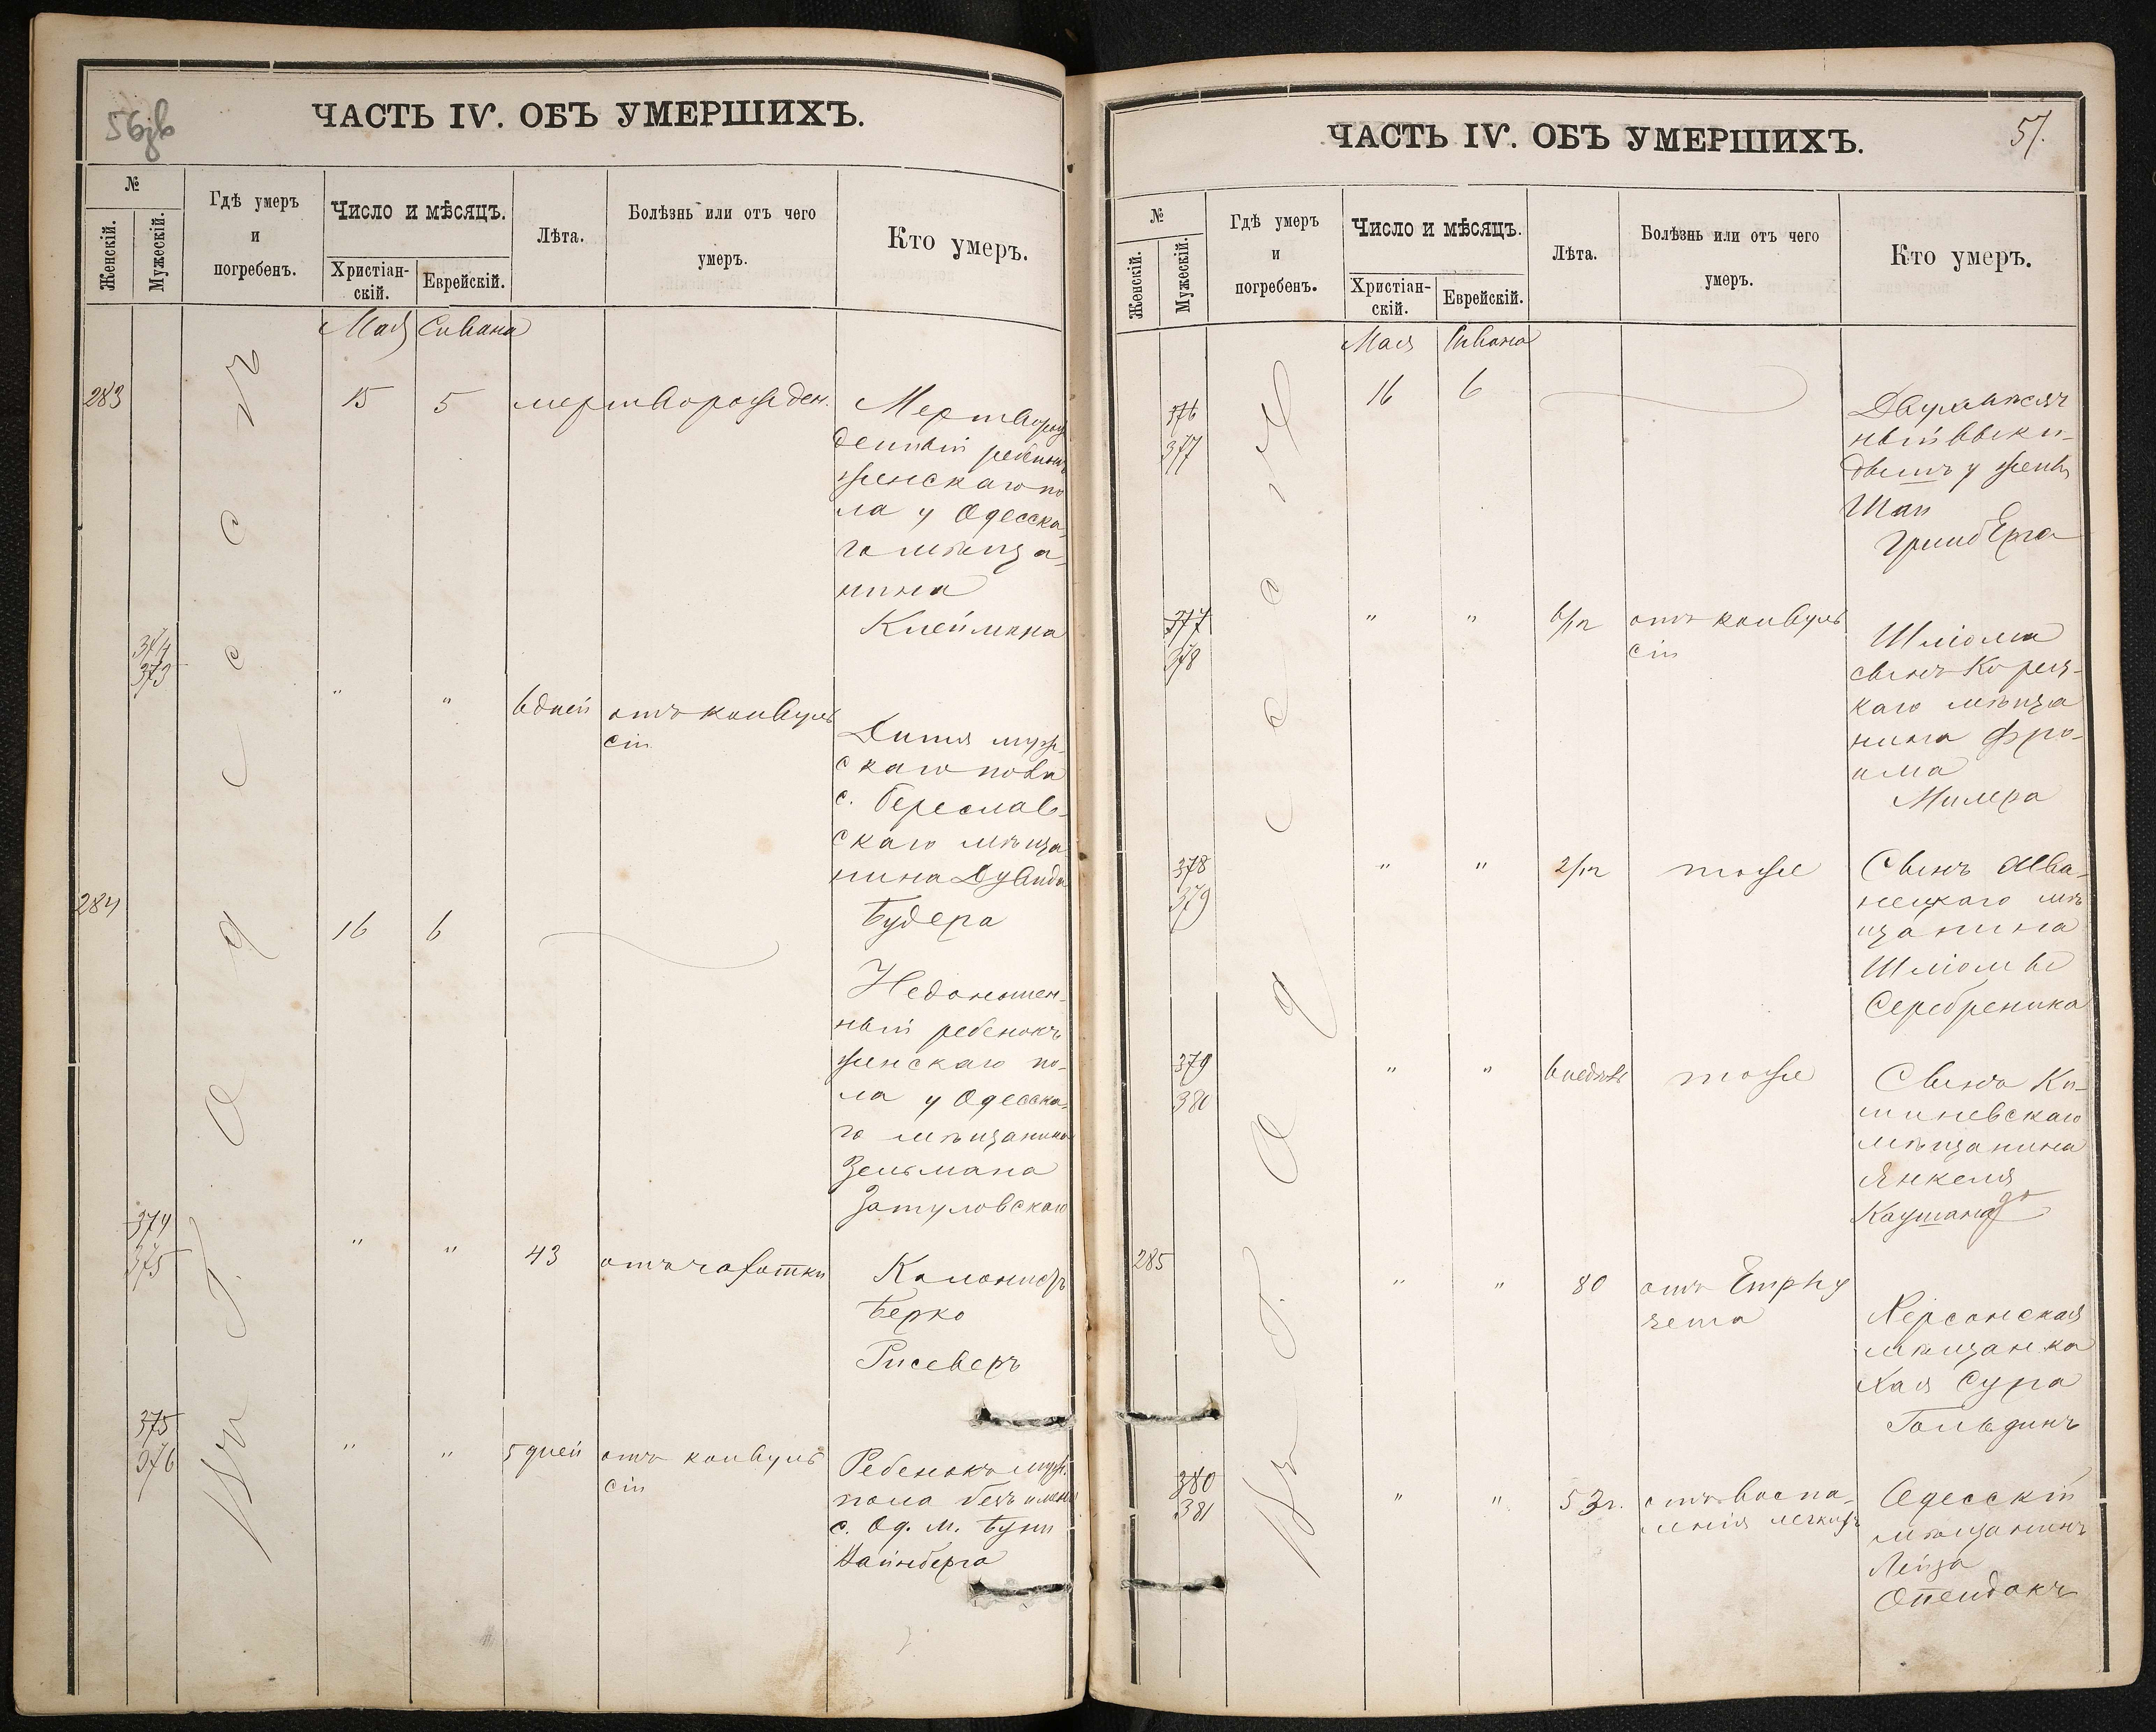 56
ЧАСТЬ IV. ОБЪ УМЕРШИХЪ.
№
Женскій.
Мужескій.
Гдѣ умеръ
и
погребенъ.
Число и мѣсяцъ.
Христіан-
скій.
Еврейскій.
Лѣта.
Болѣзнь или отъ чего
умеръ.
Кто умеръ.
Мая Сивана
Въ г. Одессѣ
283
15 5 мертворожден.
Мертворож
денный ребенокъ
женскаго по
ла у Одесска
го мѣща
нина
Клеймана
374
373
" " 6 дней отъ конвуль
сіи
Дитя муж.
скаго пола
с. Береслав-
скаго мѣща
нина Дувида
Будера
284
16 6
Недоношен-
ный ребенокъ
женскаго по-
ла у Одесска-
го мѣщанина
Зельмана
Затуловскаго
374
375
" " 43 отъ чахотки
Колонистъ
Берко
Рисеверъ
375
376
" " 5 дней отъ конвуль
сіи
Ребенокъ муж.
пола безъ имени
с. Од. м. Буни
Вайнберга
ЧАСТЬ IV. ОБЪ УМЕРШИХЪ.
57.
№
Женскій.
Мужескій.
Гдѣ умеръ
и
погребенъ.
Число и мѣсяцъ.
Христіан-
скій.
Еврейскій.
Лѣта.
Болѣзнь или отъ чего
умеръ.
Кто умеръ.
Мая Сивана
Въ г. Одессѣ
376
377
16 6
ный выки-
дышъ у жены
Гринберга
377
378
" " 6/12 отъ конвуль
сіи
Шліома
сынъ Корец-
каго мѣща
нина Фро-
има
Милера
378
379
" " 2/12 тоже
Сынъ
мѣ
щанина
Шліомы
Серебреника
379
380
" " 6 недѣль тоже
Сынъ Ки-
шиневскаго
мѣщанина
Янкеля
285
" " 80 отъ Emphy
зema
Херсонская
мѣщанка
Хая Сура
Гольдинъ
380
381
" " 53 г. отъ воспа-
ленія легкихъ
Одесскій
мѣщанинъ
Лейза
Опендакъ